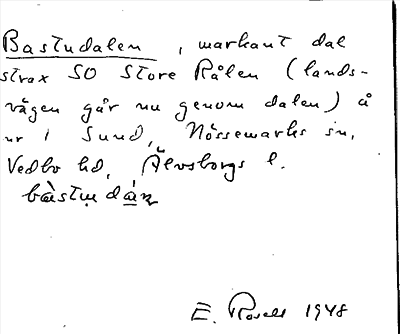 Bastudalen, markant dal
strax SO Store Rålen (lands-
vägen går nu genom dalen) å
nr 1 Sund, Nössemarks sn,
Vedbo hd, Älvsborgs l.
bàstu dán
E. Rosell 1948